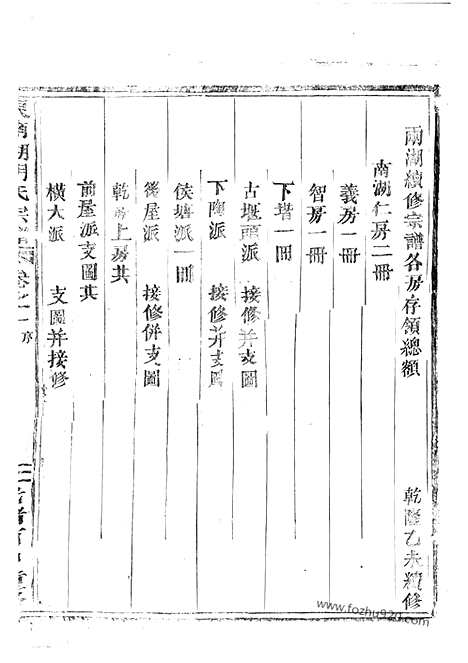 兩湖續修宗譜各房存領總額　乾隆乙未續修
南湖仁房二冊
義房一冊
智房一冊
下增一冊
古堰頭派　接修并支圖
下陳派　接修并支圖
侯塘派一冊
後屋派　接修併支圖
上房共
前屋派支圖共
橫大派　支圖并接修
湖胡氏宗譜卷之一序
www.fozhu920.com